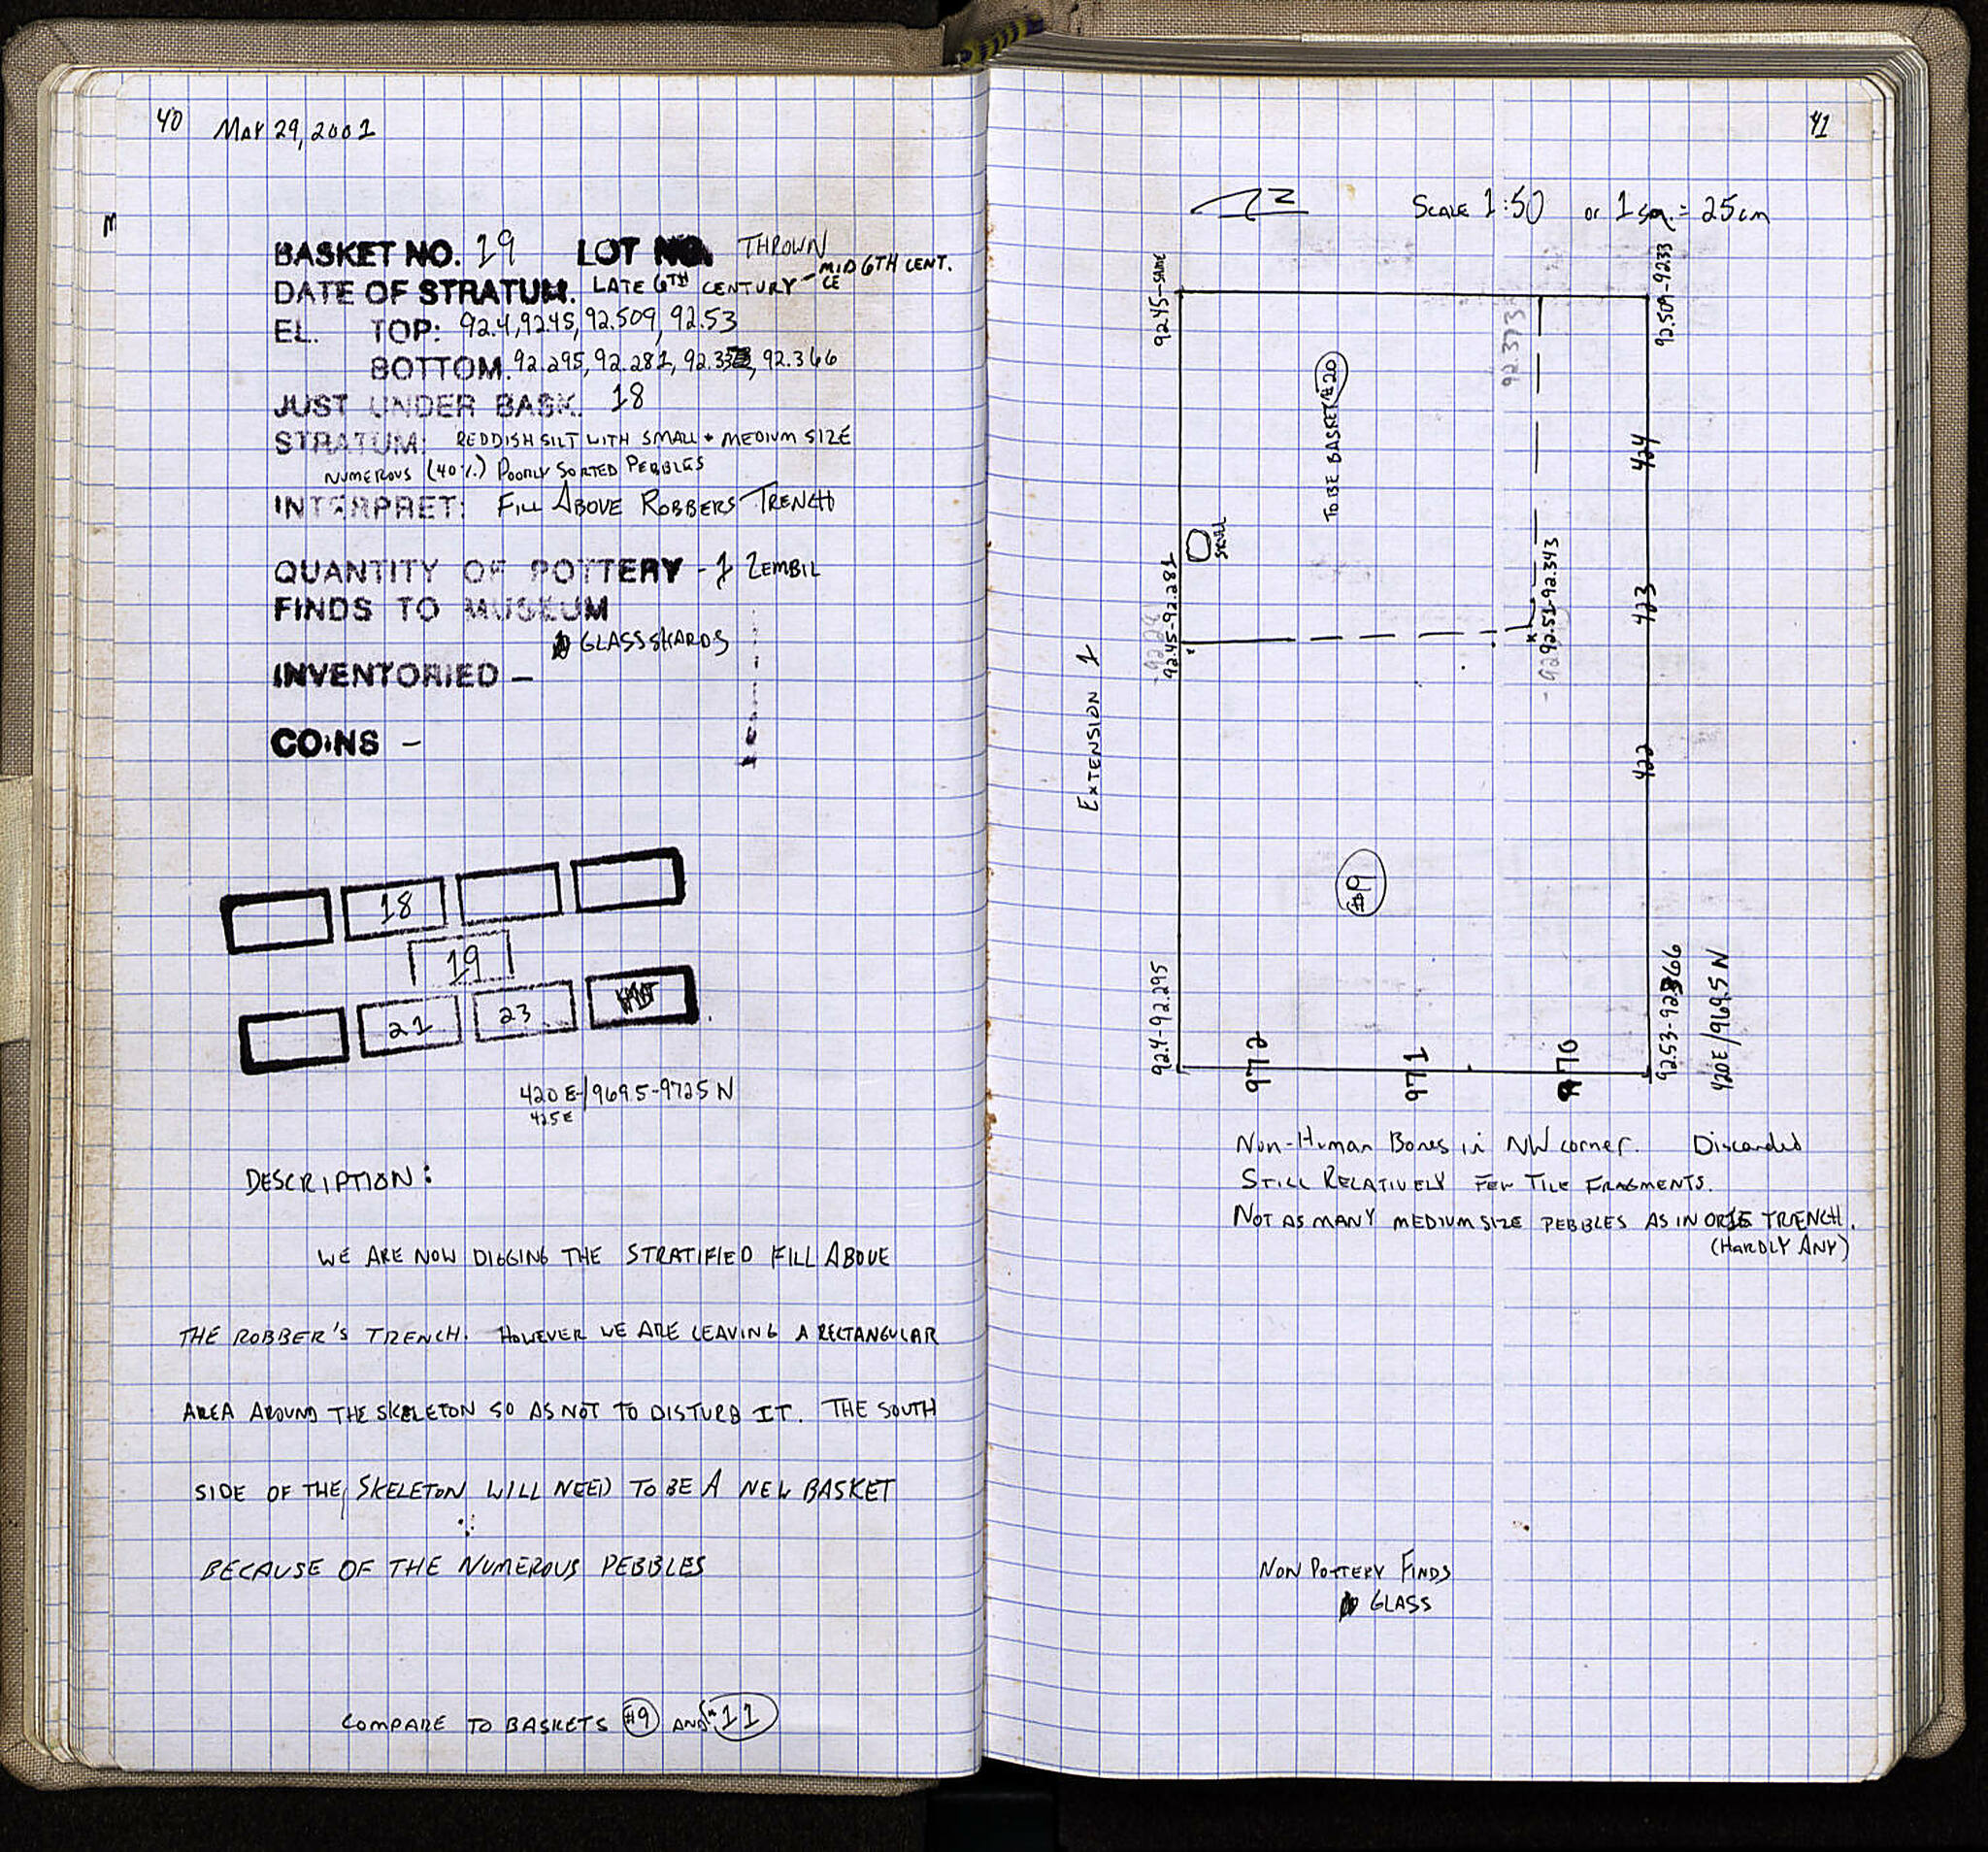 40 MAY 29, 2001
M
BASKET NO. 19 LOT NO. THROWN
DATE OF STRATUM. LATE 6TH CENTURY - MID 6TH CENT. CE
EL. TOP: 92.4, 92.45, 92.509, 92.53
BOTTOM. 92.295, 92.281, 92.366
JUST UNDER BASK. 18
STRATUM: REDDISH SILT WITH SMALL + MEDIUM SIZE
NUMEROUS (40%) POORLY SORTED PEBBLES
INTERPRET: FILL ABOVE ROBBERS TRENCH
QUANTITY OF POTTERY - 1 ZEMBIL
FINDS TO MUSEUM
GLASS SHARDS
INVENTORIED -
COINS -
18
19
21 23
420 E-/969.5-972.5 N
425 E
DESCRIPTION:
WE ARE NOW DIGGING THE STRATIFIED FILL ABOVE
THE ROBBER'S TRENCH. HOWEVER WE ARE LEAVING A RECTANGULAR
AREA AROUND THE SKELETON SO AS NOT TO DISTURB IT. THE SOUTH
SIDE OF THE SKELETON WILL NEED TO BE A NEW BASKET
BECAUSE OF THE NUMEROUS PEBBLES
COMPARE TO BASKETS #9 AND #11
41
SCALE 1:50 or 1 sq. = 25cm
N
92.45-SAME
92.509-92.33
92.373
TO BE BASKET #20
SKULL
424
92.45-92.281
92.28
92.51-92.343
423
EXTENSION 1
422
#19
92.4-92.295
972
971
970
92.53-92.366
420E/969.5 N
Non-Human Bones in NW corner. Discarded
STILL RELATIVELY FEW TILE FRAGMENTS.
NOT AS MANY MEDIUM SIZE PEBBLES AS IN ORIG TRENCH.
(HARDLY ANY)
NON POTTERY FINDS
GLASS